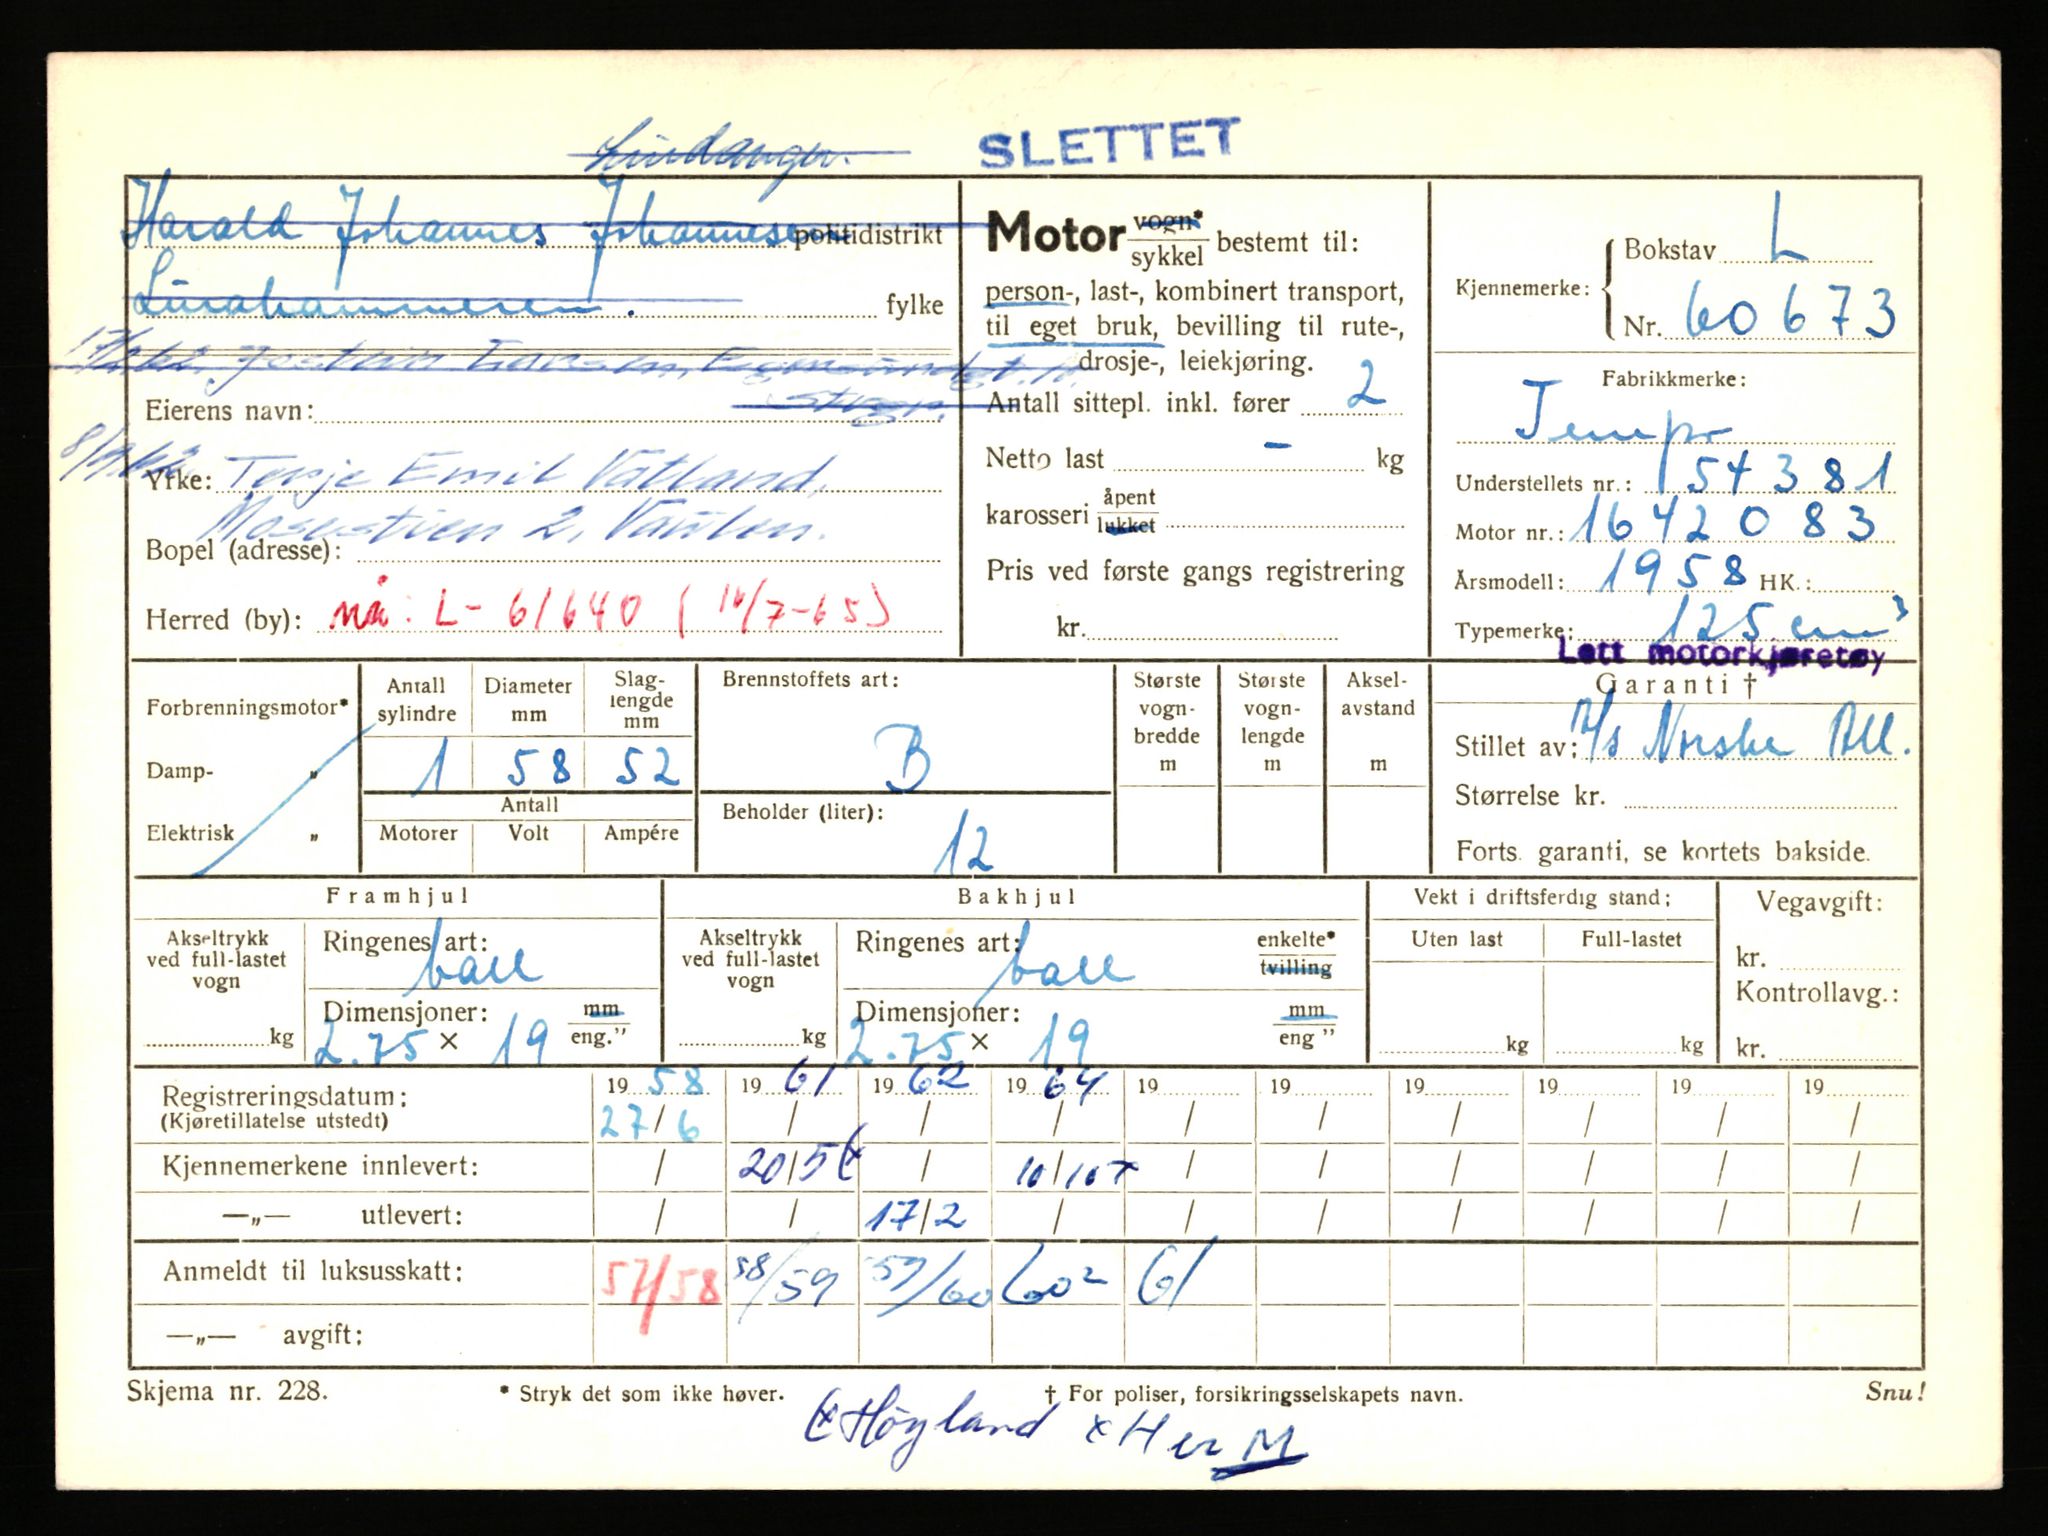 SLETTET
Harald Johannes Johannesen politidistrikt
Lurahammeren. fylke
Eierens navn:
Yrke: Terje Emil Vatland,
Mosestien 2, Vaulen.
Bopel (adresse):
Herred (by): nå: L- 61640 (16/7-65)
Motor vogn* / sykkel bestemt til:
person-, last-, kombinert transport,
til eget bruk, bevilling til rute-,
drosje-, leiekjøring.
Antall sittepl. inkl. fører 2
Netto last - kg
karosseri åpent / lukket
Pris ved første gangs registrering
kr.
Kjennemerke: Bokstav L
Nr. 60673
Fabrikkmerke:
Tempo
Understellets nr.: 154381
Motor nr.: 1642083
Årsmodell: 1958 HK.:
Typemerke: 125 cm³
Lett motorkjøretøy
Forbrenningsmotor*
Damp- "
Elektrisk "
Antall sylindre 1
Diameter mm 58
Slaglengde mm 52
Antall
Motorer Volt Ampére
Brennstoffets art:
B
Beholder (liter):
12
Største vogn-bredde m
Største vogn-lengde m
Aksel-avstand m
Garanti †
Stillet av: A/s Norske All.
Størrelse kr.
Forts. garanti, se kortets bakside.
Framhjul
Akseltrykk ved full-lastet vogn kg
Ringenes art: ball
Dimensjoner: 2.75 × 19 mm / eng."
Bakhjul
Akseltrykk ved full-lastet vogn kg
Ringenes art: ball enkelte* / tvilling
Dimensjoner: 2.75 × 19 mm / eng"
Vekt i driftsferdig stand:
Uten last Full-lastet
kg kg
Vegavgift:
kr.
Kontrollavg.:
kr.
Registreringsdatum: 19 58 19 61 19 62 19 64 19 19 19 19 19 19
(Kjøretillatelse utstedt) 27/6 / / / / / / / / /
Kjennemerkene innlevert: / 20/5 / 10/10 x / / / / / /
—„— utlevert: / / 17/2 / / / / / / /
Anmeldt til luksusskatt: 57/58 58/59 59/60 60² 61
—„— avgift:
Skjema nr. 228. * Stryk det som ikke høver. † For poliser, forsikringsselskapets navn. Snu!
Høyland x Her M